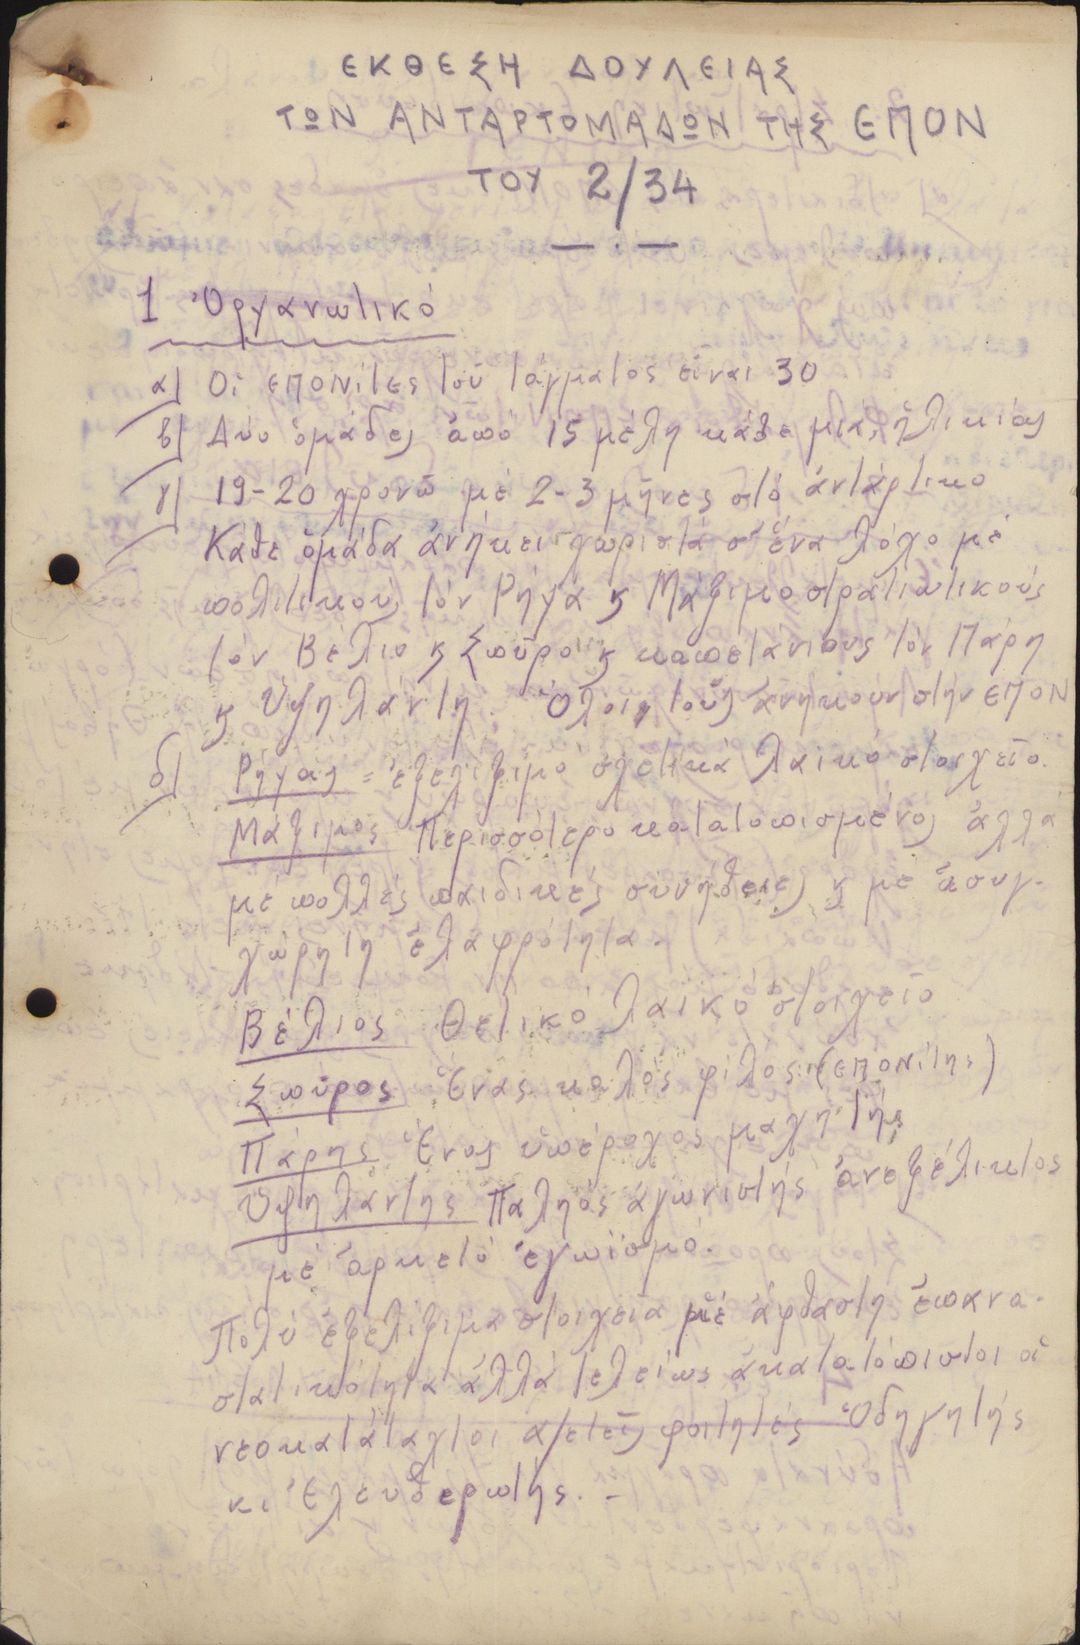 ΕΚΘΕΣΗ ΔΟΥΛΕΙΑΣ
ΤΩΝ ΑΝΤΑΡΤΟΜΑΔΩΝ ΤΗΣ ΕΠΟΝ
ΤΟΥ 2/34
1 Ὀργανωτικό
α) Οἱ ΕΠΟΝίτες τοῦ τάγματος εἶναι 30
β) Δυο ὁμάδες ἀπό 15 μέλη κάθε μιά, ἡλικίας
γ) 19-20 χρονῶ μέ 2-3 μῆνες στό ἀντάρτικο
Κάθε ὁμάδα ἀνήκει χωριστά σ' ἕνα λόχο μέ
πολιτικούς τόν Ρήγα κ Μάξιμο στρατιωτικούς
τόν Βέλιο κ Σπῦρο κ καπετάνιους τόν Πάρη
κ Ὑψηλάντη. Ὅλοι τους ἀνήκουν στήν ΕΠΟΝ
δ) Ρήγας = ἐξελίξιμο σχετικά λαικό στοιχεῖο.
Μάξιμος Περισσότερο κατατοπισμένος ἀλλά
μέ πολλές παιδικές συνήθειες κ μέ ἀσυγ-
χώρητη ἐλαφρότητα.
Βέλιος Θετικό λαικό στοιχεῖο
Σπῦρος Ἕνας καλός φίλος (ΕΠΟΝίτης)
Πάρης Ἕνας ὑπέροχος μαχητής
Ὑψηλάντης Παληός ἀγωνιστής ἀνεξέλικτος
μέ ἀρκετό ἐγωϊσμό.
Πολύ ἐξελίξιμα στοιχεῖα μέ ἄφθαστη ἐπανα-
στατικότητα ἀλλά τελείως ἀκατατόπιστοι οἱ
νεοκατάταχτοι φοιτητές Ὁδηγητής
κι Ἐλευθερωτής. -